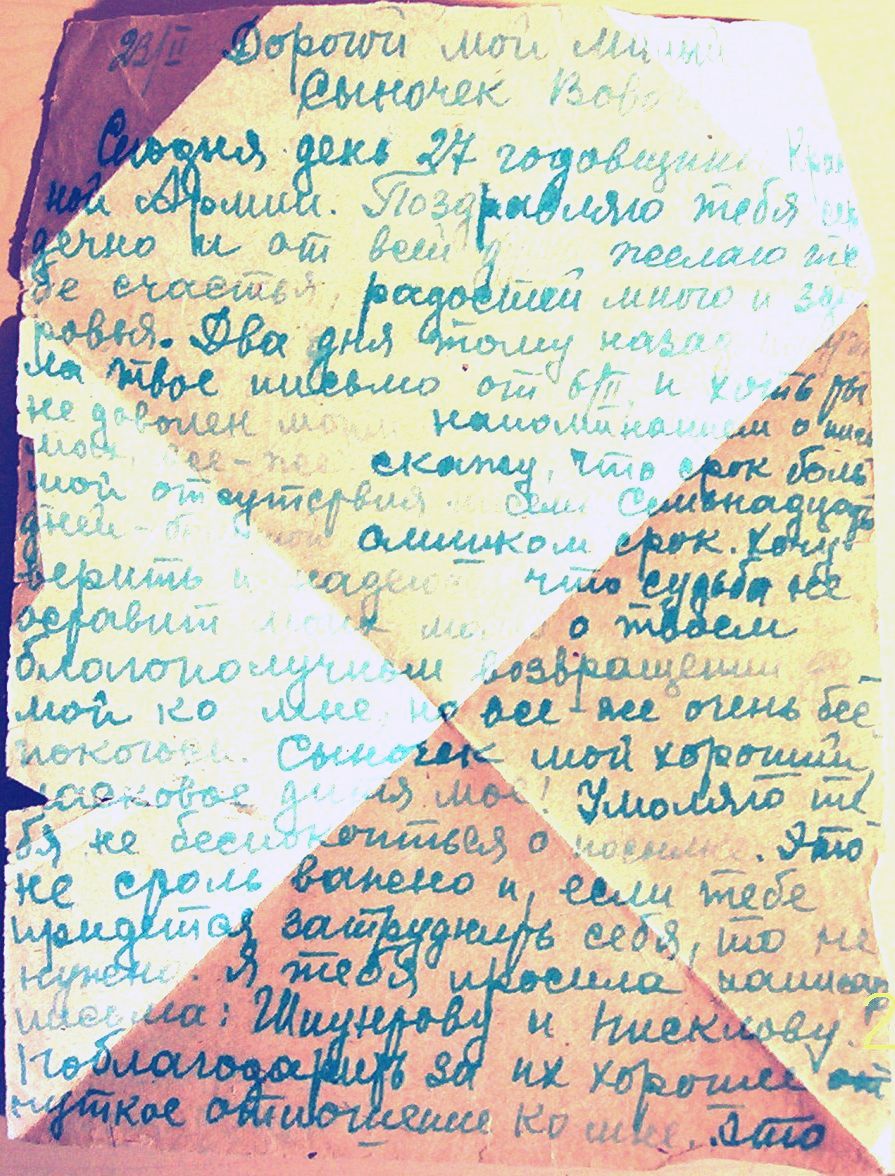 23/II Дорогой мой милый
Сыночек Вово
Сегодня день 27 годовщины Крас
ной Армии. Поздравляю тебя сер
дечно и от всей желаю те
бе счастья, радостей много и здо
ровья. Два дня тому назад получи
ла твое письмо от 6/II, и хоть ты
не доволен моим напоминанием о пись
мах, все-же скажу, что срок боль
шой отсутствия Семнадцать
дней - слишком срок. Хочу
верить и надеюсь что судьба не
оставит моих о твоем
благополучном возвращении до
мой ко мне, но все-же очень бес
покоюсь. Сыночек мой хороший,
ласковое дитя мое! Умоляю те
бя не беспокоиться о посылке. Это
не столь важно и, если тебе
придется затруднить себя, то не
нужно. Я тебя просила написать
письма: и
Поблагодарить за их хорошее от
чуткое отношение ко мне. Это